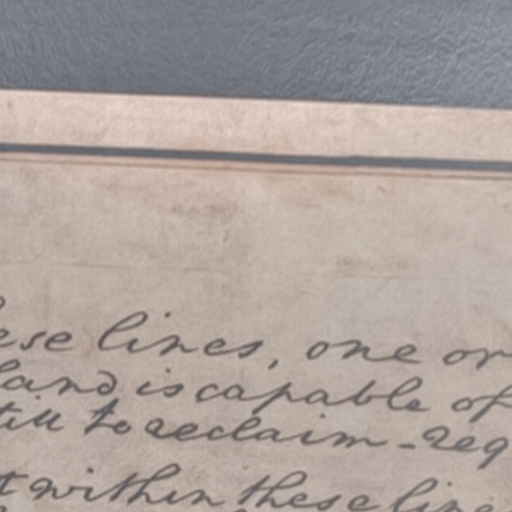 ese lines, one or
land is capable of
till to reclaim - req
t within these line